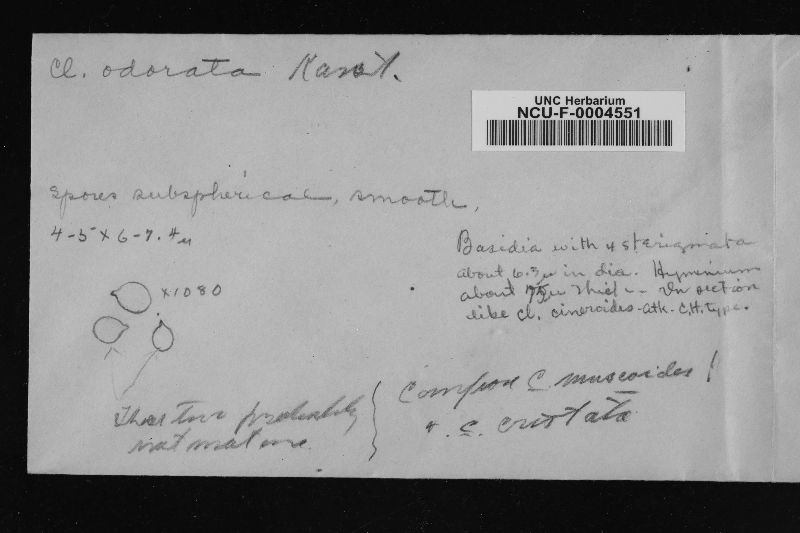 Cl. odorata Karst.
UNC Herbarium
NCU-F-0004551
spores subspherical, smooth,
4-5 x 6-7.4µ
x1080
Basidia with 4 sterigmata
about 6.3µ in dia. Hyminium
about 75µ thick -- In section
like Cl. cineroides - Atk. C.H. type.
These two probably
not mature
Compare C. muscoides!
+ C. cristata